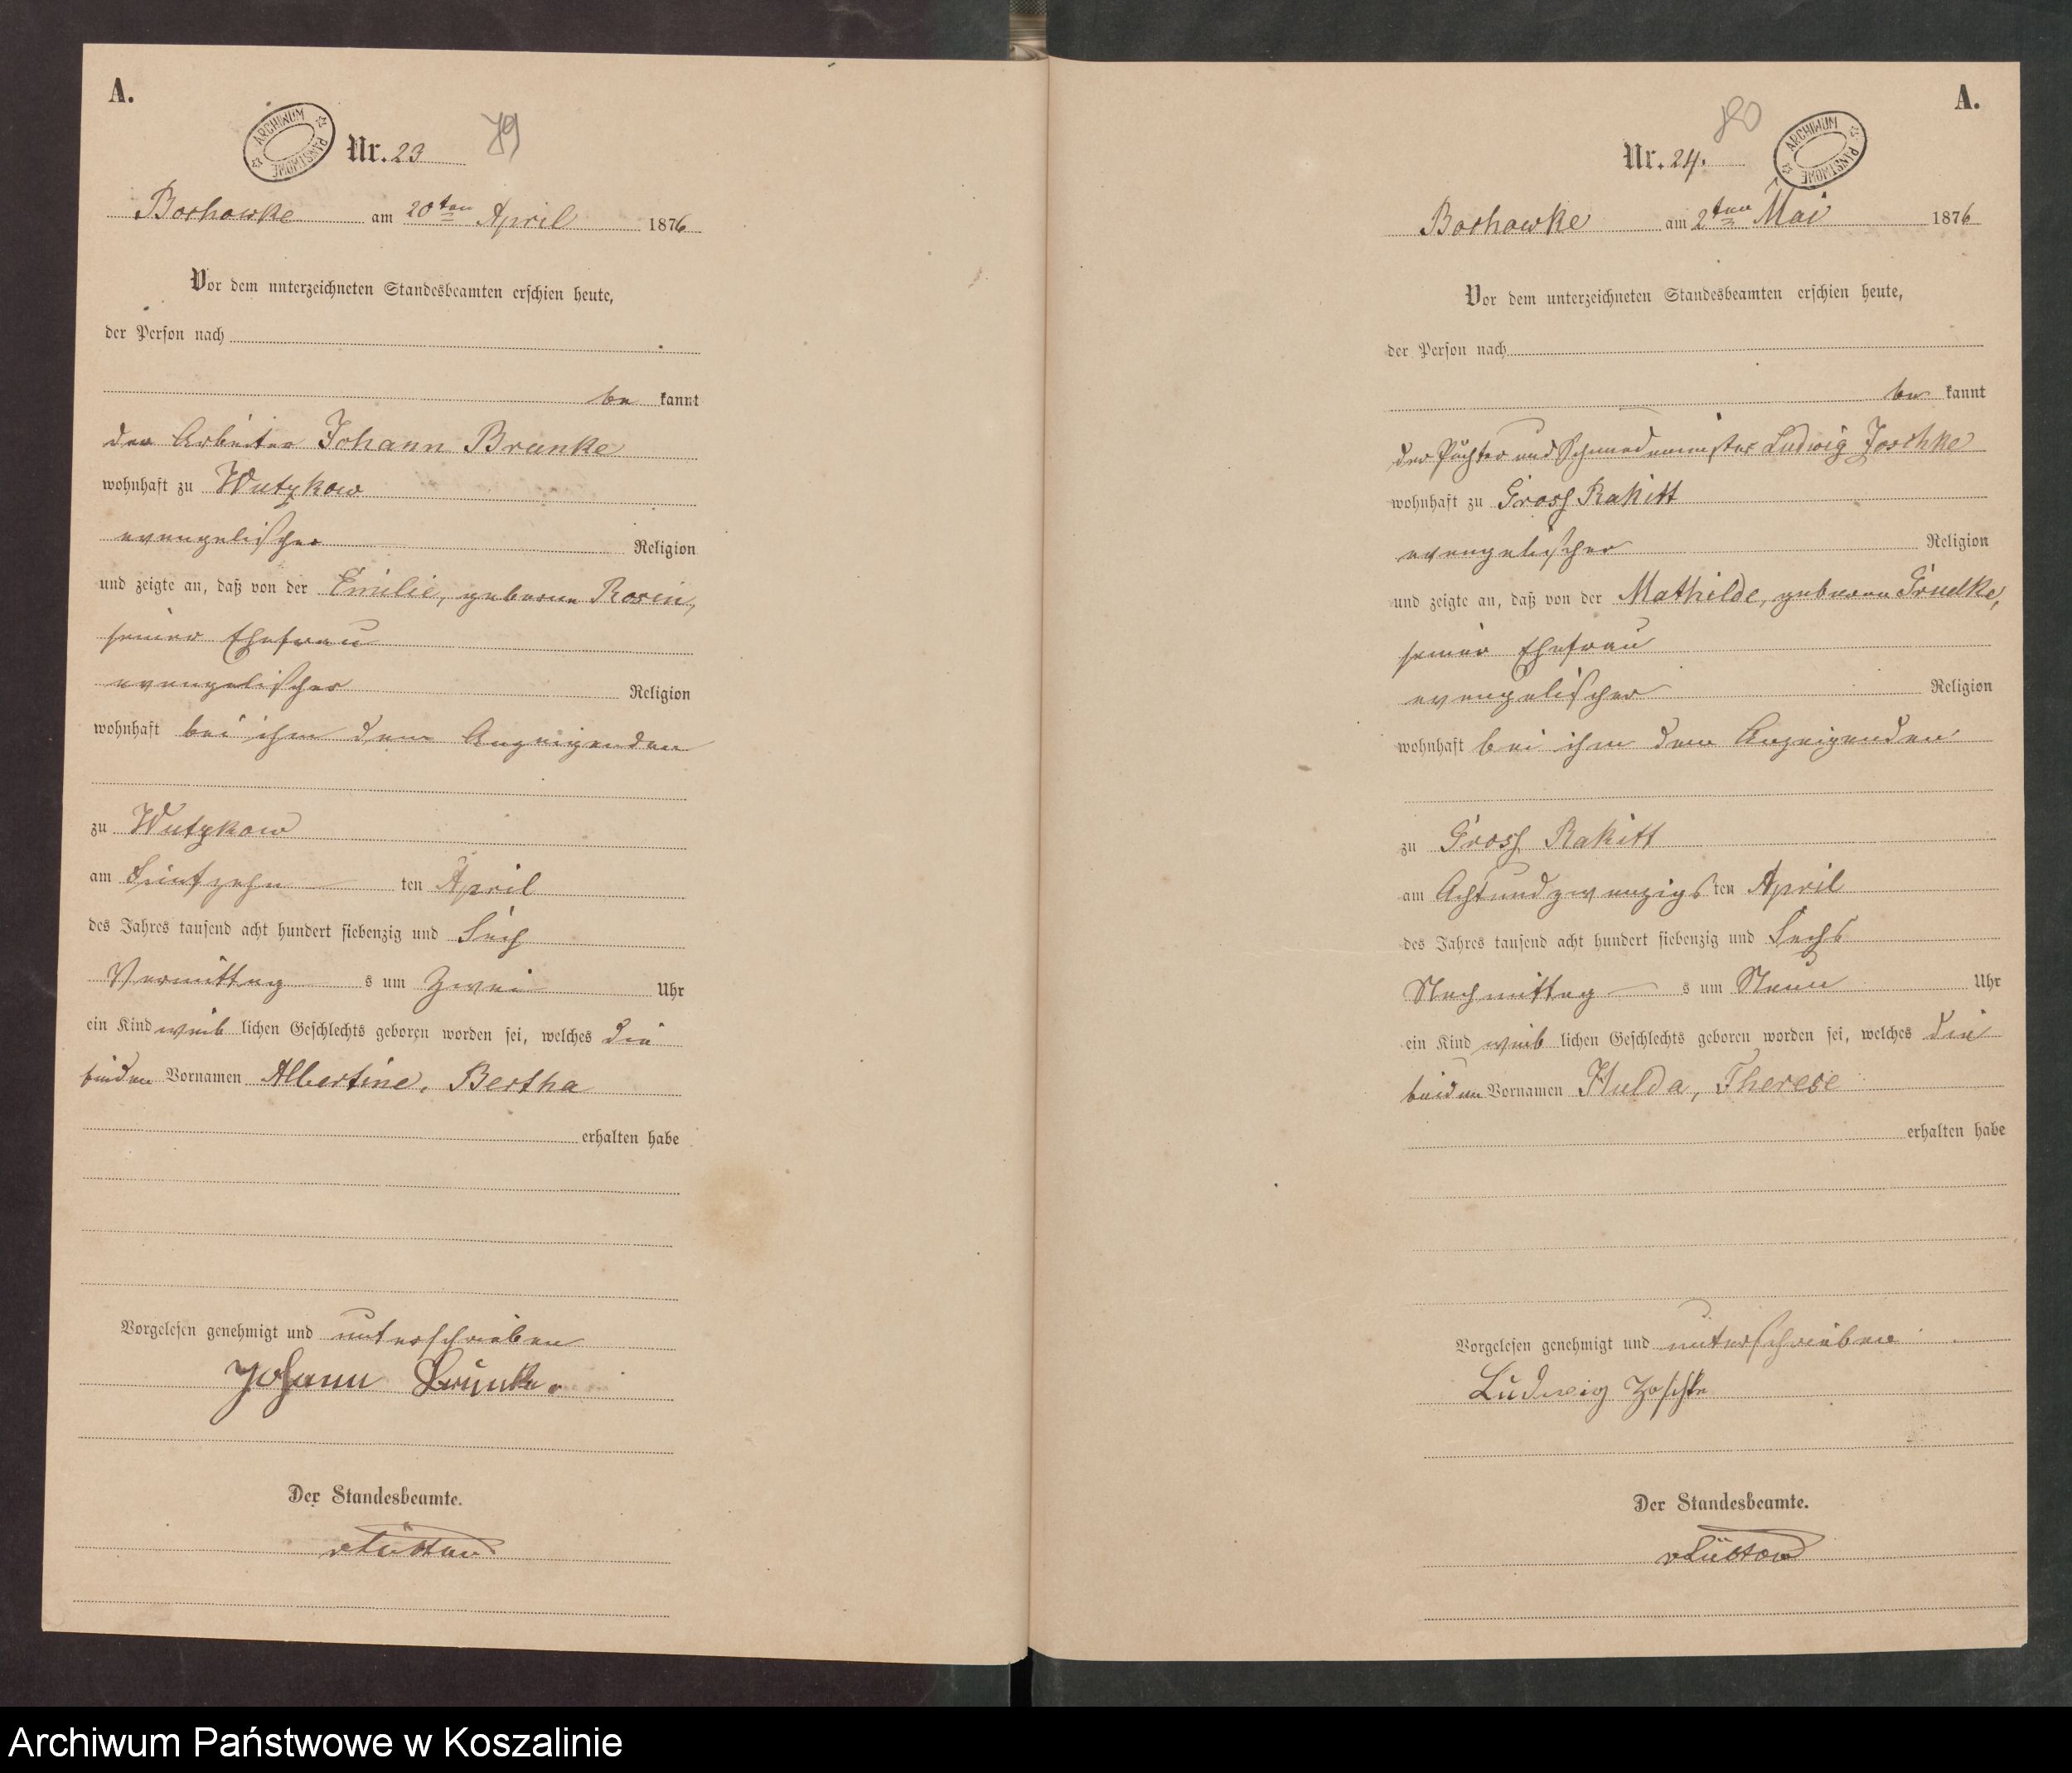 A.
ARCHIWUM PAŃSTWOWE
Nr. 23
79
Bochowke am 20ten April 1876
Vor dem unterzeichneten Standesbeamten erschien heute,
der Person nach
be kannt
der Arbeiter Johann Brunke
wohnhaft zu Wutzkow
evangelischer Religion
und zeigte an, daß von der Emilie, geborene Rosin,
seiner Ehefrau
evangelischer Religion
wohnhaft bei ihm dem Anzeigenden
zu Wutzkow
am Fünfzehn ten April
des Jahres tausend acht hundert siebenzig und
Vormittag s um Zwei Uhr
ein Kind weib lichen Geschlechts geboren worden sei, welches die
beiden Vornamen Albertine, Bertha
erhalten habe
Vorgelesen genehmigt und unterschrieben
Johann Brunke.
Der Standesbeamte.
A.
80
ARCHIWUM PAŃSTWOWE
Nr. 24.
Bochowke am 2ten Mai 1876
Vor dem unterzeichneten Standesbeamten erschien heute,
der Person nach
be kannt
der Pächter und Schmiedemeister Ludwig Joschke
wohnhaft zu Gross Rakitt
evangelischer Religion
und zeigte an, daß von der Mathilde, geborene
seiner Ehefrau
evangelischer Religion
wohnhaft bei ihm dem Anzeigenden
zu Gross Rakitt
am Achtundzwanzigs ten April
des Jahres tausend acht hundert siebenzig und Sechs
Nachmittag s um Neun Uhr
ein Kind weib lichen Geschlechts geboren worden sei, welches die
beiden Vornamen Hulda, Therese
erhalten habe
Vorgelesen genehmigt und unterschrieben
Ludwig Joschke
Der Standesbeamte.
Archiwum Państwowe w Koszalinie